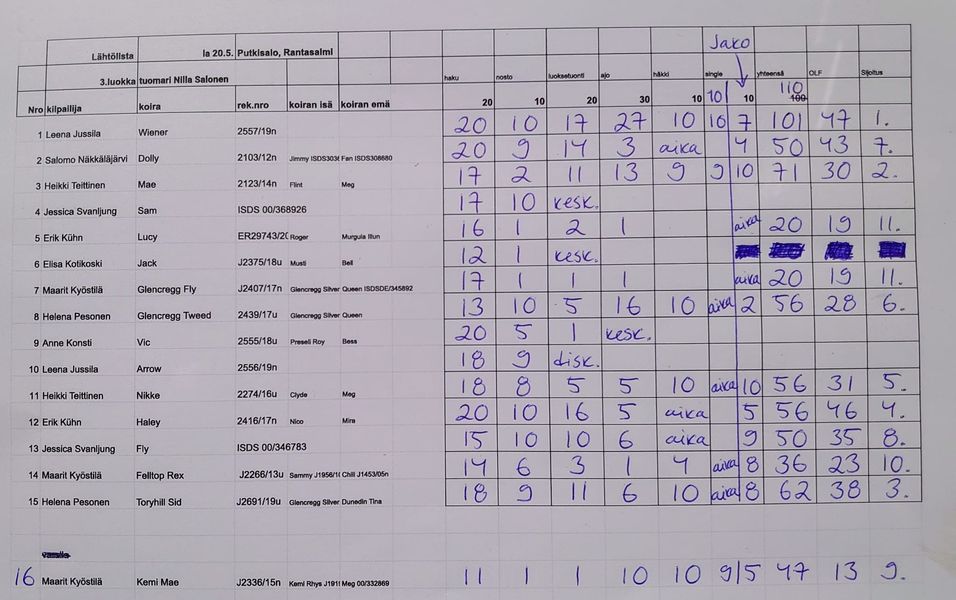 Jako
Lähtölista la 20.5. Putkisalo, Rantasalmi
3.luokka tuomari Nilla Salonen haku nosto luoksetuonti ajo häkki single yhteensä OLF Sijoitus
Nro kilpailija koira rek.nro koiran isä koiran emä 20 10 20 30 10 10 10 110 100
1 Leena Jussila Wiener 2557/19n 20 10 17 27 10 10 7 101 47 1.
2 Salomo Näkkäläjärvi Dolly 2103/12n Jimmy Fan ISDS308680 20 9 14 3 aika 4 50 43 7.
3 Heikki Teittinen Mae 2123/14n Flint Meg 17 2 11 13 9 9 10 71 30 2.
4 Jessica Svanljung Sam ISDS 00/368926 17 10 kesk.
5 Erik Kühn Lucy ER29743/20 Roger Murgula Illun 16 1 2 1 aika 20 19 11.
6 Elisa Kotikoski Jack J2375/18u Musti Bell 12 1 kesk.
7 Maarit Kyöstilä Glencregg Fly J2407/17n Glencregg Silver Queen ISDSDE/345892 17 1 1 1 aika 20 19 11.
8 Helena Pesonen Glencregg Tweed 2439/17u Glencregg Silver Queen 13 10 5 16 10 aika 2 56 28 6.
9 Anne Konsti Vic 2555/18u Preseli Roy Bess 20 5 1 kesk.
10 Leena Jussila Arrow 2556/19n 18 9 disk.
11 Heikki Teittinen Nikke 2274/16u Clyde Meg 18 8 5 5 10 aika 10 56 31 5.
12 Erik Kühn Haley 2416/17n Nico Mira 20 10 16 5 aika 5 56 46 4.
13 Jessica Svanljung Fly ISDS 00/346783 15 10 10 6 aika 9 50 35 8.
14 Maarit Kyöstilä Felltop Rex J2266/13u Sammy J1956/1 Chili J1453/05n 14 6 3 1 4 aika 8 36 23 10.
15 Helena Pesonen Toryhill Sid J2691/19u Glencregg Silver Dunedin Tina 18 9 11 6 10 aika 8 62 38 3.
16 Maarit Kyöstilä Kemi Mae J2336/15n Kemi Rhys J191 Meg 00/332869 11 1 1 10 10 9/5 47 13 9.